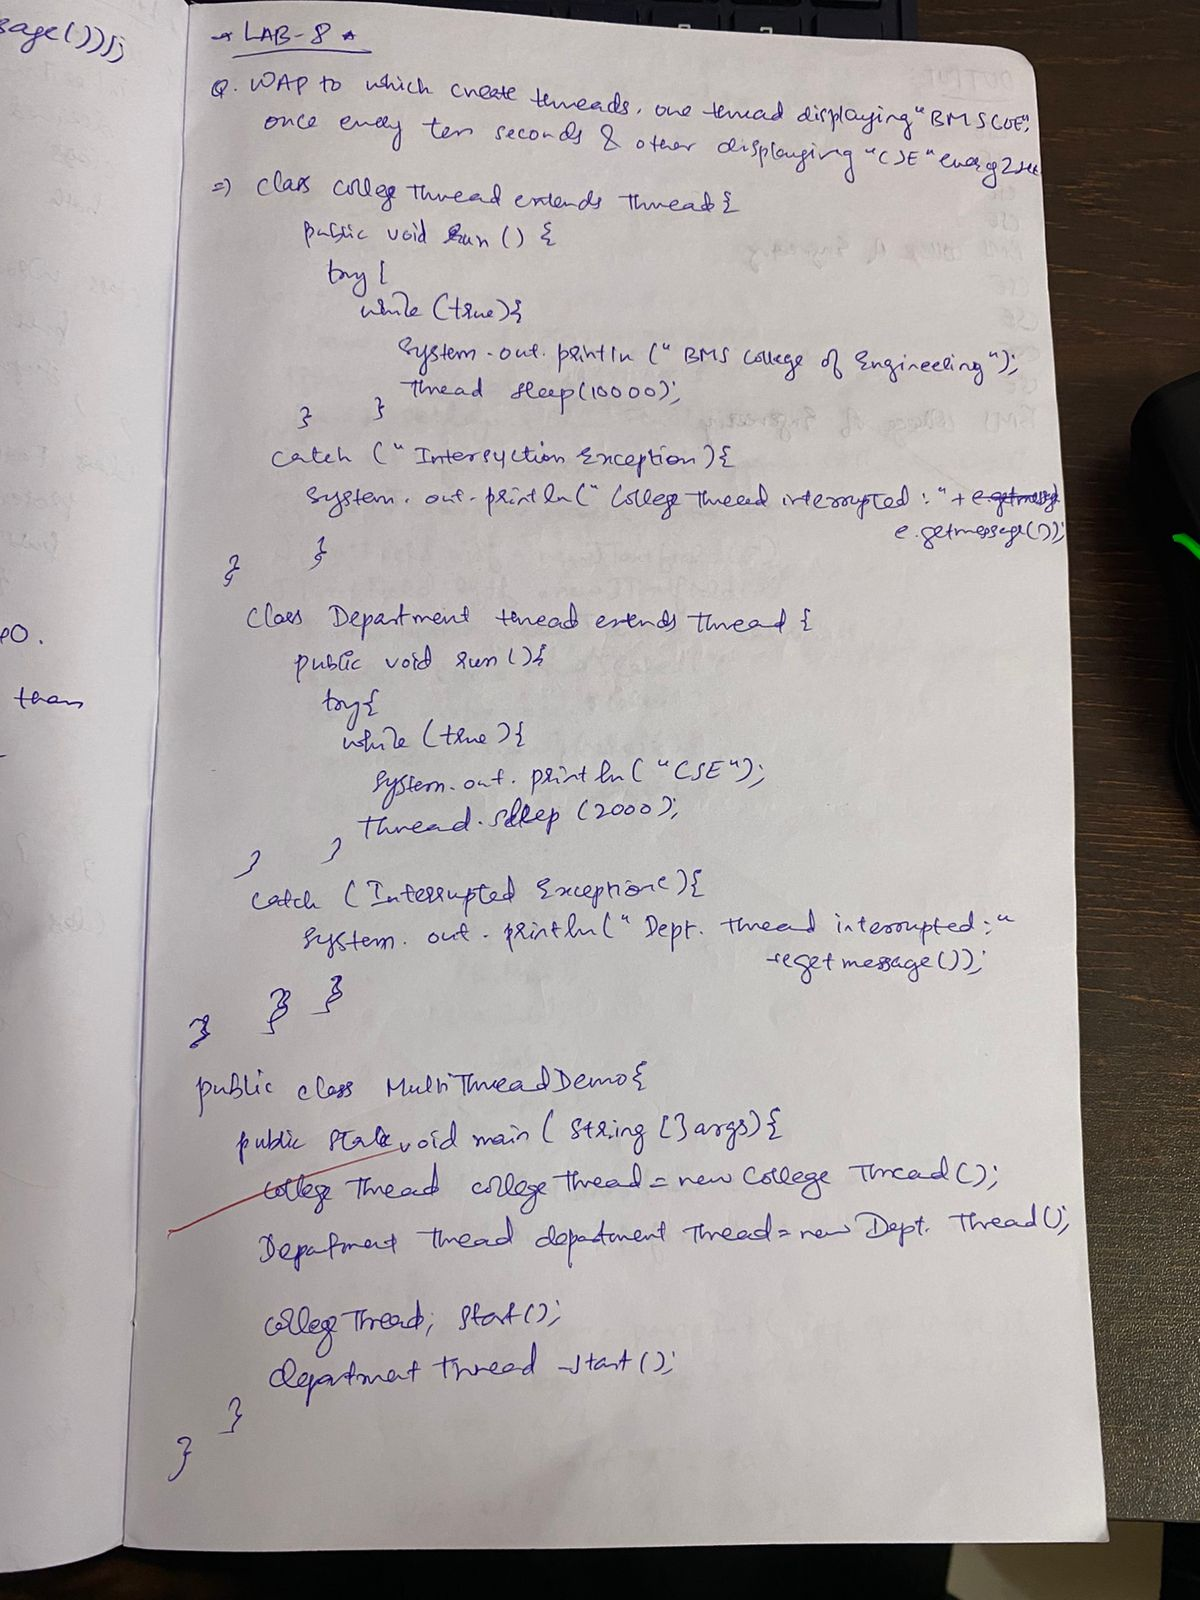 sage());
eo.
than
→ LAB-8 *
Q. WAP to which create threads, one thread displaying "BMSCOE",
once every ten seconds & other displaying "CSE" every 2 sec
⇒ class college Thread extends Thread {
public void run () {
try {
while (true) {
System.out.println (" BMS College of Engineering");
Thread sleep(10000);
} }
catch (" Interruction Exception) {
System.out.println(" College Thread interrupted : " + e.getmessg
e.getmessage());
} }
class Department thread extends Thread {
public void run () {
try {
while (true) {
System.out.println ("CSE");
Thread.sleep (2000);
} }
catch (Interrupted Exception e) {
System.out.println(" Dept. thread interrupted : "
+e getmessage());
} } }
public class MultiThreadDemo {
public static void main ( String [] args) {
College Thread college Thread = new College Thread ();
Department Thread department Thread = new Dept. Thread ();
college Thread; start ();
department thread start ();
}
}